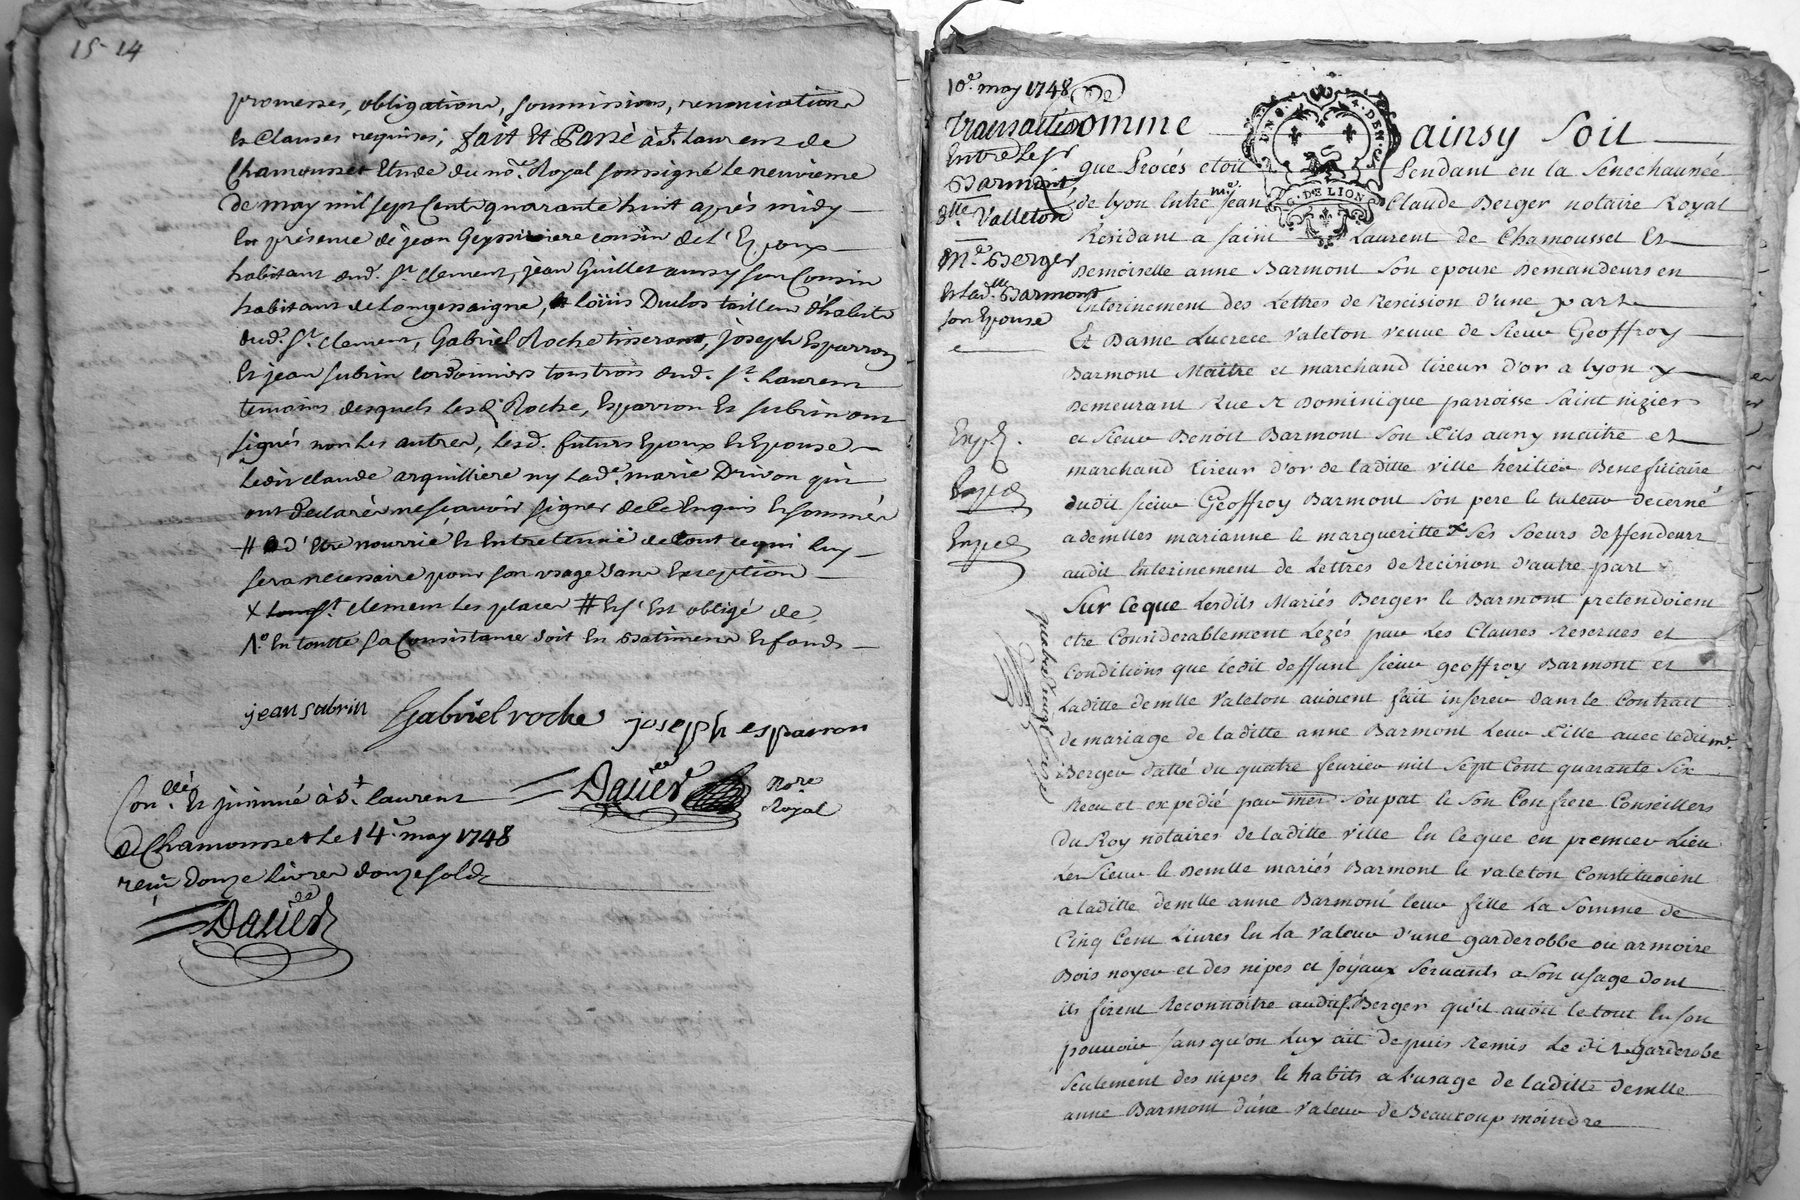 15-14
promesses, obligations, soumissions, renonciations
et clauses requises; fait et Passé à St. Laurent de
Chamousset Etude du no.re Royal soussigné le neuvieme
de may mil sept cent quarante huit après midy
en présence de jean Geyssiniere cousin de l'Epoux
habitant aud. St. clement, jean Guillet aussy son Cousin
habitant de Longessaigne, Loüis Duclos tailleur d'habits
aud. St. clement, Gabriel Roche tisserant, joseph Esparron
et jean subrin cordonniers tous trois aud. St. Laurent
temoins desquels lesd. Roche, Esparron et subrin ont
signés non les autres, lesd. futurs Epoux et Epouse
ledit claude arquilliere ny lad.e marie Drivon qui
ont declarés ne sçavoir signer de ce Enquis et sommés
# d'etre nourrie et Entretenüe de tout ce qui luy
sera necessaire pour son usage sans Exception
X St. clement les places # Et s'Est obligé de
1.o En toutte sa Consistance soit En Batiments Et fonds
jean sabrin Gabriel roche joseph esparron
Dalier No.re Royal
Con.llé Et jnsinué à St. laurent
de Chamousset le 14.e may 1748
reçu douze livres douze sols
Dalier
10.e may 1748
De
Transaction
Entre le Sr
Barmont,
D.lle Valleton
M.e Berger
Et lad.lle Barmont
son Epouse
Exp.
Exped
Exped
G. DE LION
Comme ainsy soit
que Procés etoit Pendant en la Senechaussée
de lyon Entre m.e Jean Claude Berger notaire Royal
Residant a saint Laurent de Chamousset Et
Demoiselle anne Barmont son epouse Demandeurs en
Enterinement des Lettres de Rescision d'une part
Et Dame Lucrece Valeton veuve de sieur Geoffroy
Barmont Maitre et marchand tireur d'or a lyon y
Demeurant Rue St Dominique parroisse saint nizier
et sieur Benoit Barmont son fils aussy maitre et
marchand tireur d'or de laditte ville heritier Beneficiaire
dudit sieur Geoffroy Barmont son pere le tuteur decerné
a demlles marianne le margueritte ses soeurs deffendeurs
audit Enterinement de Lettres de Recision d'autre part
Sur ce que Lesdits Mariés Berger le Barmont pretendoient
etre Considerablement Lezés par Les Clauses Reserves et
Conditions que ledit deffunt sieur geoffroy Barmont et
Laditte demlle Valeton avoient fait inserer dans le Contrat
de mariage de laditte anne Barmont leur fille avec ledit m.e
Berger datté du quatre fevrier mil sept Cent quarante six
Recu et expedié par mes Soupat le son Confrere Conseillers
du Roy notaires de laditte ville En ce que en premier Lieu
Les sieur le Demlle mariés Barmont le valeton Constituoient
a laditte demlle anne Barmont leur fille La somme de
Cinq Cent Livres En La Valeur d'une garderobbe ou armoire
Bois noyer et des nipes et Joyaux servants a son usage dont
ils firent Reconnoitre audit S. Berger qu'il avoit le tout En son
pouvoir sans qu'on Luy ait depuis Remis Le dit garderobe
seulement des nipes le habits a l'usage de laditte demlle
anne Barmont d'une Valeur de Beaucoup moindre